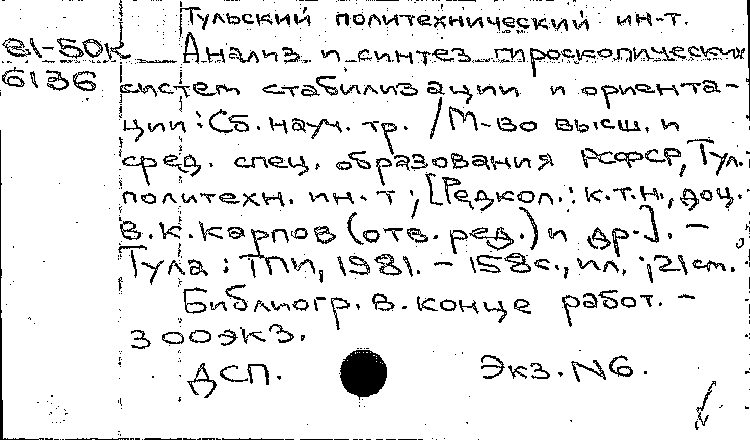 Тульский политехнический ин-т.
81-50к Анализ и синтез гироскопических
6136 систем стабилизации и ориента-
ции : Сб. науч. тр. / М-во высш. и
сред. спец. образования РСФСР, Тул.
политехн. ин. т ; [Редкол. : к.т.н., доц.
В. К. Карпов (отв. ред.) и др.]. -
Тула : ТПИ, 1981. - 158с., ил. ; 21 см.
Библиогр. в. конце работ. -
300экз.
ДСП. Экз. N6.